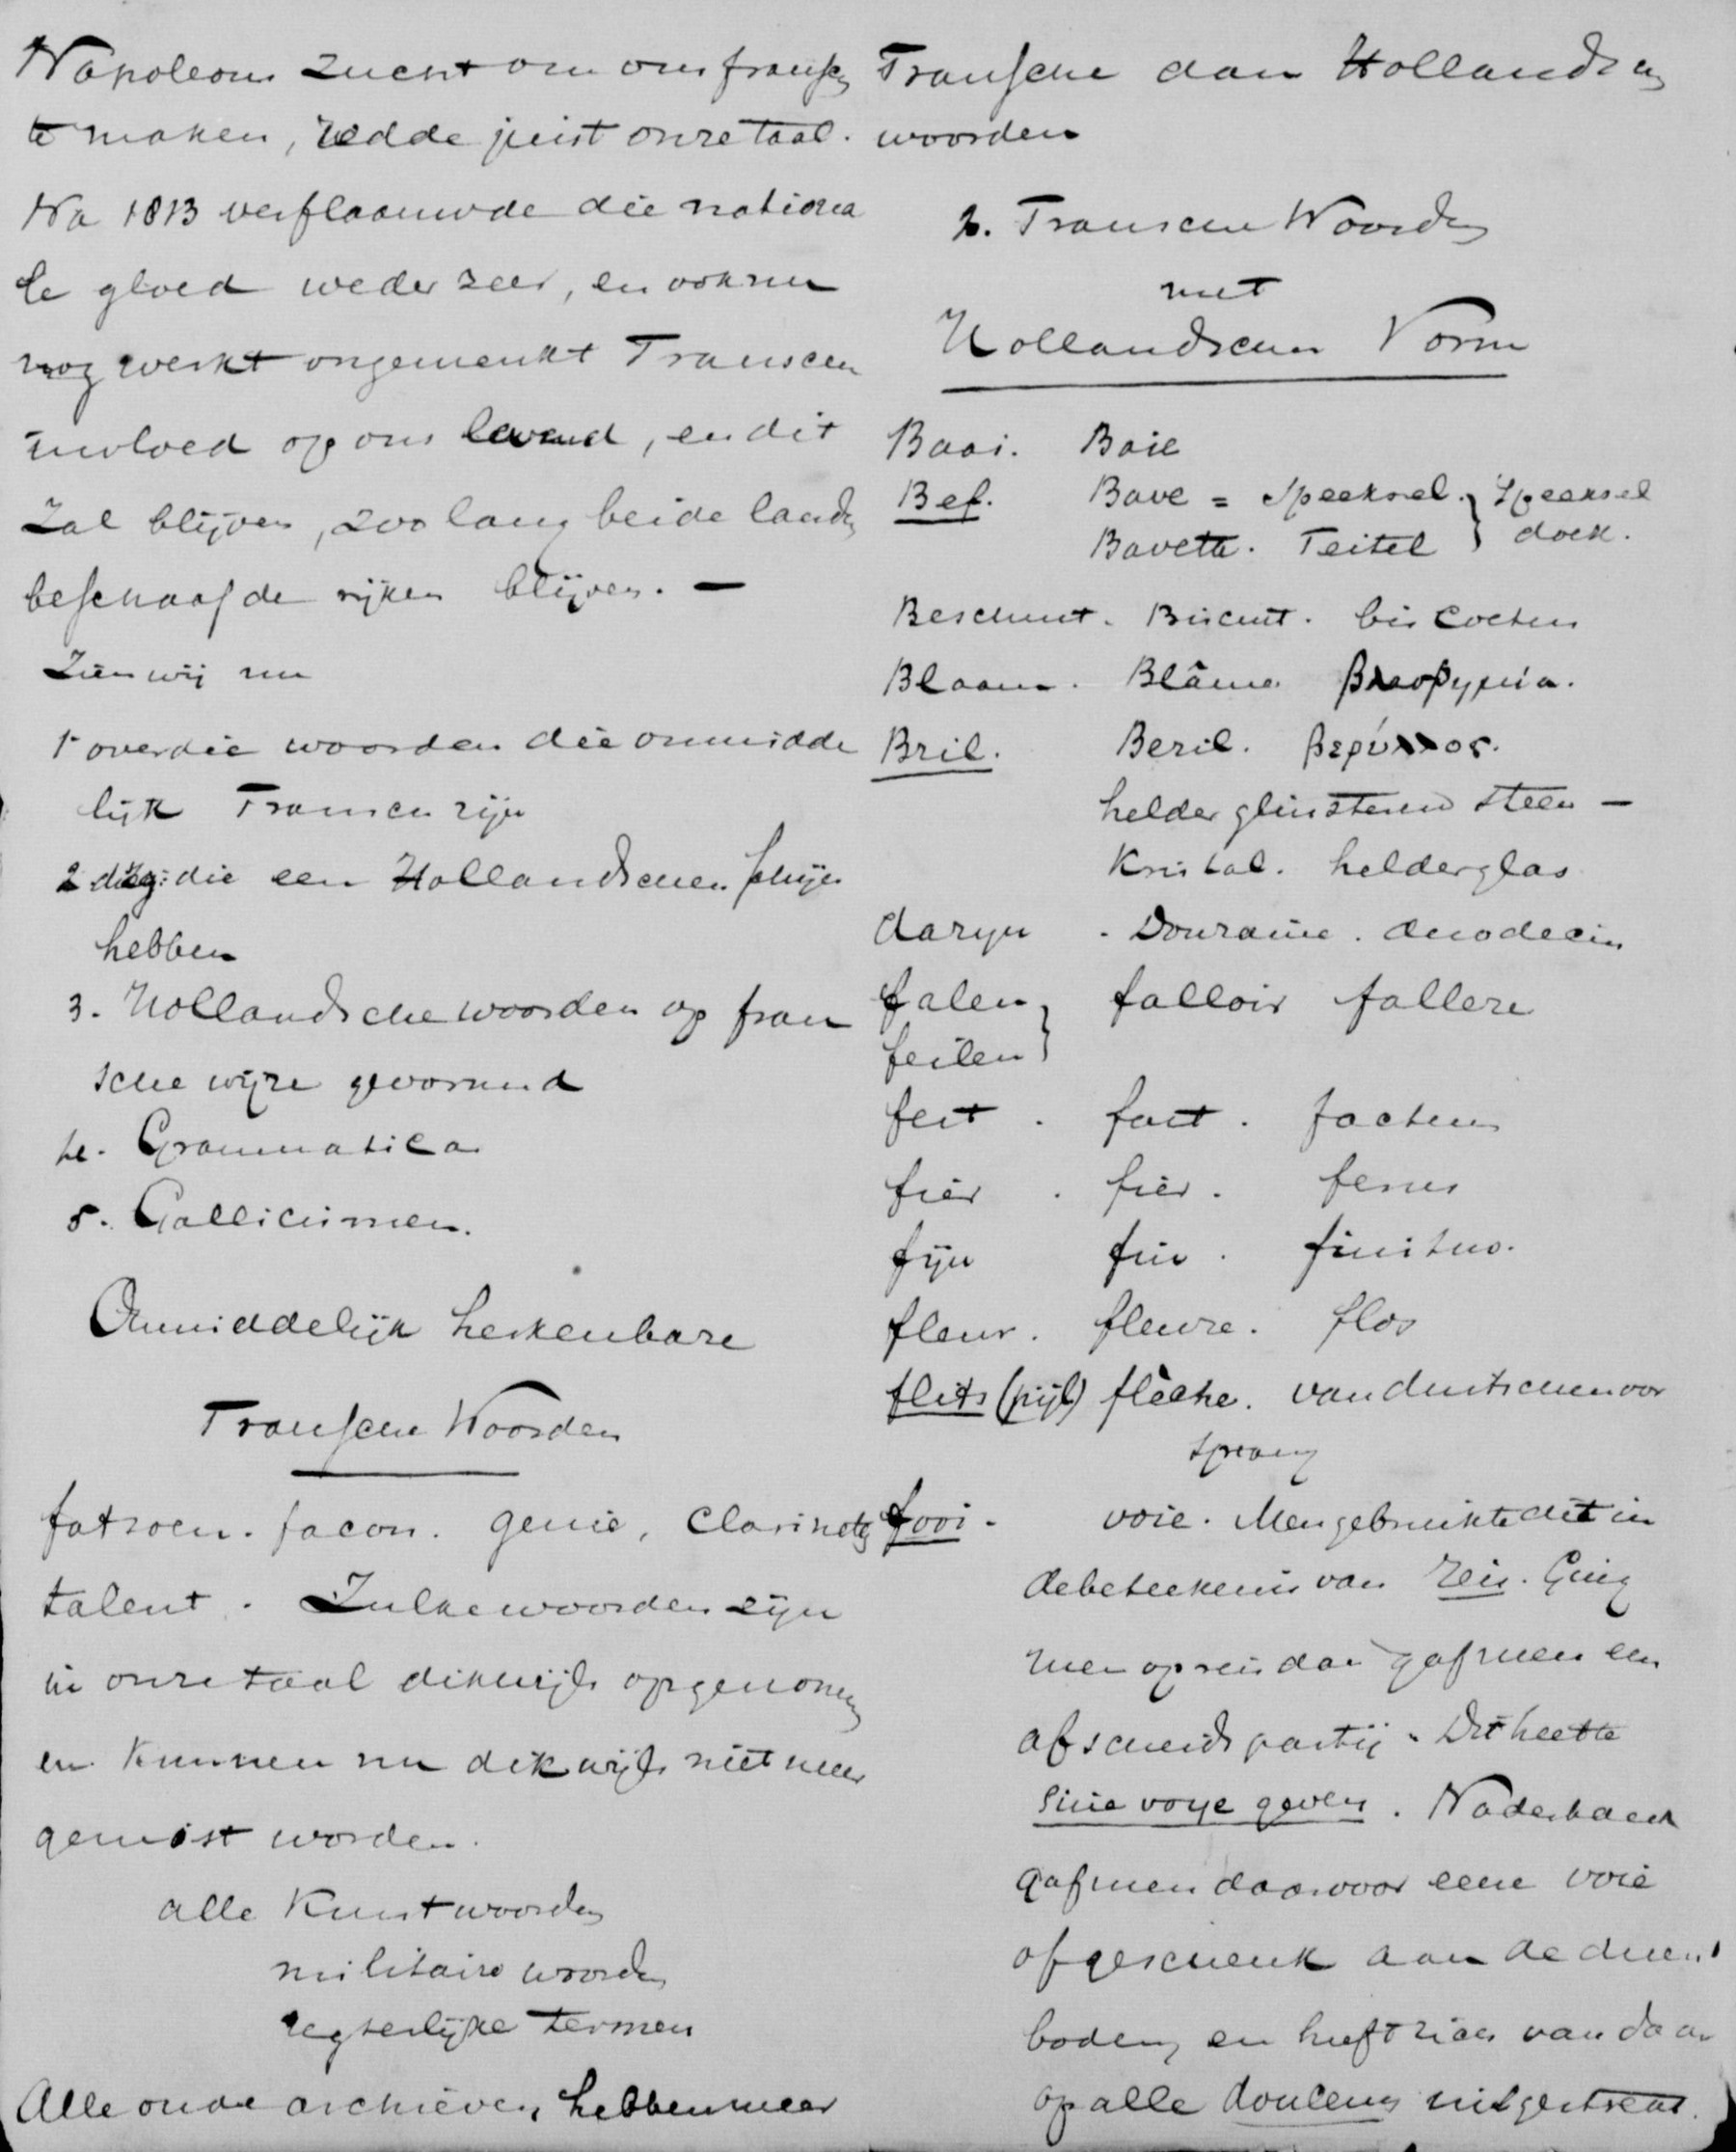 Napoleons zucht om ons fransch
te maken, redde juist onze taal.
Na 1813 verflaauwde die nationa
le gloed weder zeer, en ook nu
nog werkt ongemerkt Franschen
invloed op ons land, en dit
zal blijven, zoo lang beide landen
beschaafde rijken blijven. —
Zien wij nu
1° over die woorden die onmidde
lijk Fransch zijn
2 die een Hollandschen schijn
hebben
3. Hollandsche woorden op fran
sche wijze gevormd
4. Grammatica
5. Gallicismen.
Onmiddelijk herkenbare
Fransche Woorden
fatsoen. facon. genie, Clarinet
talent. Zulke woorden zijn
in onze taal dikwijls opgenomen
en kunnen nu dikwijls niet meer
gemist worden.
alle Kunstwoorden
militaire woorden
regterlijke termen
Alle oude archieven hebben meer
Fransche dan Hollandsche
woorden
2. Fransche Woorden
met
Hollandschen Vorm
Baai. Baie
Bef. Bave = Speeksel. } Speeksel
Bavette. Teitel } doek.
Beschuit. Biscuit. bis coctum
Blaam. Blâme βλασφημία.
Bril. Beril. βερύλλος.
helder glinsterend steen —
Kristal. helder glas
dozijn. Douzaine. duodecim
falen } falloir fallere
feilen }
feit. fait. factum
fier. fier. ferus
fijn fin. finitus.
fleur. fleure. flos
flits (pijl) flèche. van duitschen oor
sprong
fooi. voie. Men gebruikte dit in
de beteekenis van reis. Ging
men op reis dan gaf men een
afscheids partij. Dit heette
sine voye geven. Naderhand
gaf men daarvoor eene voie
of geschenk aan de dienst
boden, en heeft zich van daar
op alle douceurs uitgestrekt.